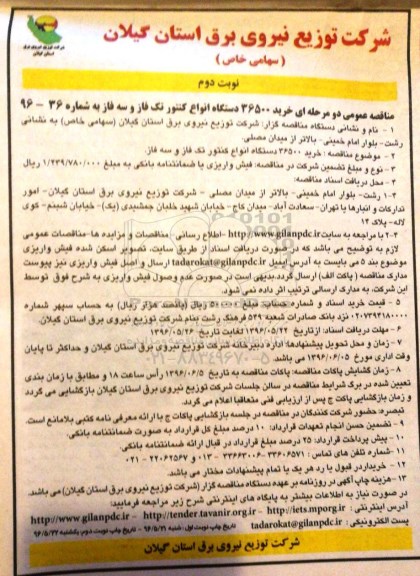 شرکت توزیع نیروی برق استان گیلان
( سهامی خاص )
نوبت دوم
مناقصه عمومی دو مرحله ای خرید ۳۶۵۰۰ دستگاه انواع کنتور تک فاز و سه فاز به شماره ۳۶ - ۹۶
۱ - نام و نشانی دستگاه مناقصه گزار: شرکت توزیع نیروی برق استان گیلان (سهامی خاص) به نشانی
رشت- بلوار امام خمینی - بالاتر از میدان مصلی.
۲ - موضوع مناقصه : خرید ۳۶۵۰۰ دستگاه انواع کنتور تک فاز و سه فاز.
۳ - نوع و مبلغ تضمین شرکت در مناقصه: فیش واریزی یا ضمانتنامه بانکی به مبلغ ۱/۴۳۹/۷۸۰/۰۰۰ ریال
۴ - محل دریافت اسناد مناقصه:
۱-۴ رشت- بلوار امام خمینی- بالاتر از میدان مصلی - شرکت توزیع نیروی برق استان گیلان- امور
تدارکات و انبارها یا تهران- سعادت آباد- میدان کاج- خیابان شهید خلبان جمشیدی (یک)- خیابان شبنم- کوی
لاله- پلاک ۱۴
۲-۴ با مراجعه به سایت http://www.gilanpdc.ir -اطلاع رسانی -مناقصات و مزایده ها-مناقصات عمومی
لازم به توضیح می باشد که در صورت دریافت اسناد از طریق سایت، تصویر اسکن شده فیش واریزی
موضوع بند ۵ می بایست به آدرس ایمیل tadarokat@gilanpdc.ir ارسال و اصل فیش واریزی نیز پیوست
مدارک مناقصه ( پاکت الف) ارسال گردد.بدیهی است در صورت عدم وصول فیش واریزی به شرح فوق توسط
این شرکت، به مدارک ارسالی ترتیب اثر داده نمی شود.
۵ - قیمت خرید اسناد و شماره حساب: مبلغ ۵۰۰/۰۰۰ ریال (پانصد هزار ریال) به حساب سپهر شماره
نزد بانک صادرات شعبه ۵۴۹ فرهنگ رشت بنام شرکت توزیع نیروی برق استان گیلان.
۶ - مهلت دریافت اسناد: ازتاریخ ۱۳۹۶/۰۵/۲۲ لغایت تاریخ ۱۳۹۶/۰۵/۲۶
۷ - زمان و محل تحویل پیشنهادها: اداره دبیرخانه شرکت توزیع نیروی برق استان گیلان و حداکثر تا پایان
وقت اداری مورخ ۱۳۹۶/۰۶/۰۵ می باشد.
۸ - زمان گشایش پاکات مناقصه: پاکات مناقصه به تاریخ ۱۳۹۶/۰۶/۵ رأس ساعت ۱۸ و مطابق با زمان بندی
تعیین شده در برگ شرایط مناقصه در سالن جلسات شرکت توزیع نیروی برق استان گیلان بازگشایی می گردد
و زمان بازگشایی پاکت ج پس از ارزیابی فنی متعاقبا اعلام می گردد.
تبصره: حضور شرکت کنندگان در مناقصه در جلسه بازگشایی پاکات ج با ارائه معرفی نامه کتبی بلامانع است.
۹ - تضمین حسن انجام تعهدات قرارداد: ۱۰ درصد مبلغ کل قرارداد به صورت ضمانتنامه بانکی.
۱۰ - پیش پرداخت قرارداد: ۲۵ درصد مبلغ قرارداد در قبال ارائه ضمانتنامه بانکی.
۱۱- شماره تلفن های تماس : ۳۳۶۰۶۵۷۱ - ۳۳۶۶۳۰۰۶ - ۰۱۳ و ۲۲۰۶۲۵۶۷ - ۰۲۱
۱۲ - خریدار در قبول یا رد هر یک یا تمام پیشنهادات مختار می باشد.
۱۳- هزینه چاپ آگهی در روزنامه بر عهده دستگاه مناقصه گزار (شرکت توزیع نیروی برق استان گیلان) می باشد.
در صورت نیاز به اطلاعات بیشتر به پایگاه های اینترنتی شرح زیر مراجعه فرمایید:
آدرس اینترنتی : http://www.gilanpdc.ir - http://tender.tavanir.org.ir - http://iets.mporg.ir
پست الکترونیکی : tadarokat@gilanpdc.ir تاریخ چاپ نوبت اول: شنبه ۹۶/۵/۲۱ - تاریخ چاپ نوبت دوم: یکشنبه ۹۶/۵/۲۲
شرکت توزیع نیروی برق استان گیلان